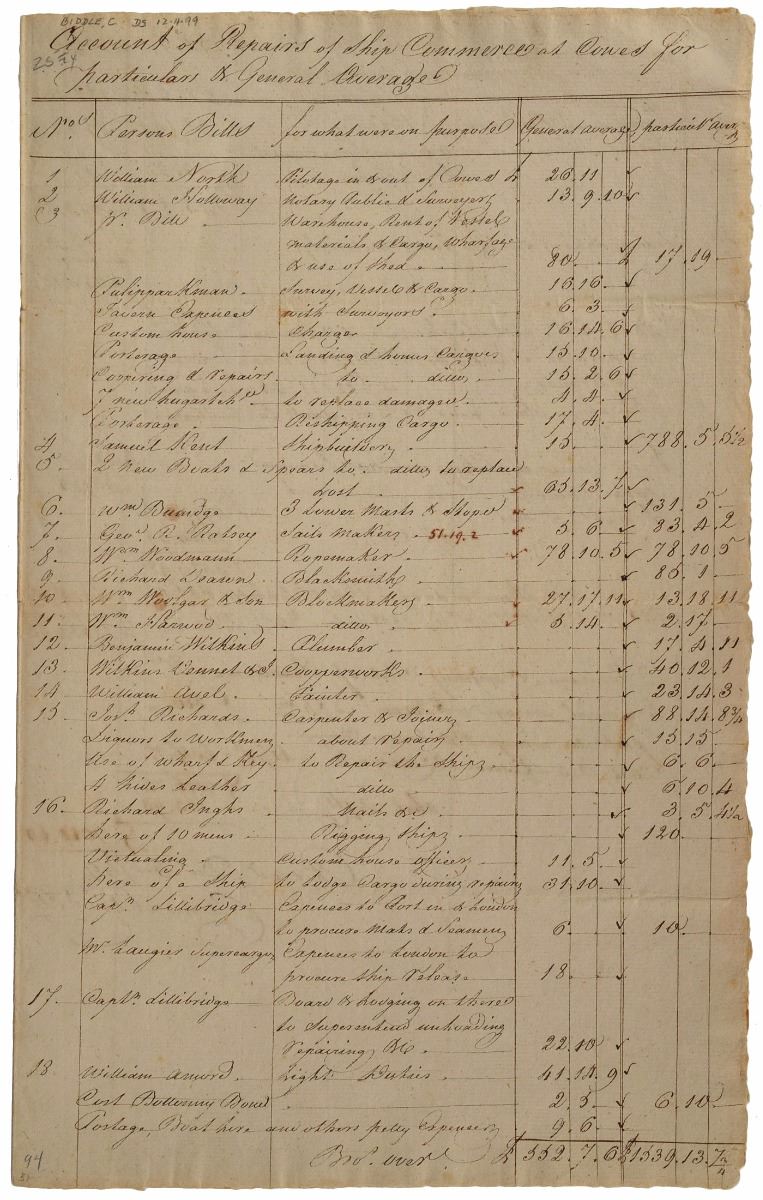 BIDDLE, C DS 12.4.99
Account of Repairs of Ship Commerce at Cowes for
particulars & General Average
Nos Persons Bills for what were on purpose General average particulr aver
1 William North Pilotage in & out of Cowes £ 26.11
2 William Holloway Notary Public & Surveyors 13.9.10
3 Wm. Bill Warehouse, Rent of Vessel
materials & Cargo, Wharfage
& use of Shed 80 £ 17.19
Survey, Vessel & Cargo 16.16
Tavern Expences with Surveyors 6.3
Custom house Charges 16.14.6
Porterage Landing & Cargoes 15.10
Coopering & repairs to ditto 15.2.6
7 new to replace damaged 4.4
Porterage Reshipping Cargo 17.4
4 Samuel Kent Shipbuilder 15 788.5.5½
5 2 New Boats & Spears to ditto to replace
Lost 65.13.7
6 Wm. 3 Lower Masts & 131.5
7 Geo. R. Ratsey Sails Makers 51.19.2 5.6 83.4.2
8 Wm Woodmann Ropemaker 78.10.5 78.10.5
9 Richard Blacksmith 86.1
10 Wm Woolgar & Son Blockmakers 27.17.11 13.18.11
11 Wm Harwood ditto 5.14 2.17
12 Benjamin Wilkins Plumber 17.4.11
13 Wilkins Cooperworks 40.12.1
14 William Avel Painter 23.14.3
15 Josh. Richards Carpenter & Joiner 88.14.8¾
Liquors to Workmen about repairs 15.15
Use of Wharf & Key to Repair the Ship 6.6
4 hides Leather ditto 6.10.4
16 Richard Inghs Nails &c 3.5.4½
here of 10 mens Rigging Ship 120
Victualing Custom house officer 11.5
here of a Ship to Lodge Cargo during repairing 31.10
Capn. Lillibridge Expences to Port in & London
to procure Mats & Seamens 6 10
Mr. Laugier Supercargo Expences to London to
procure Ship release 18
17 Captn. Lillibridge Board & Lodging on there
to Superentend unloading
repairing &c 22.10
18 William Light Duties 41.14.9
Cost Bottomry Bond 2.5 6.10
Postage, Boat hire and others petty Expenses 9.6
Brot. over £ 552.7.6 £ 1539.13.
94